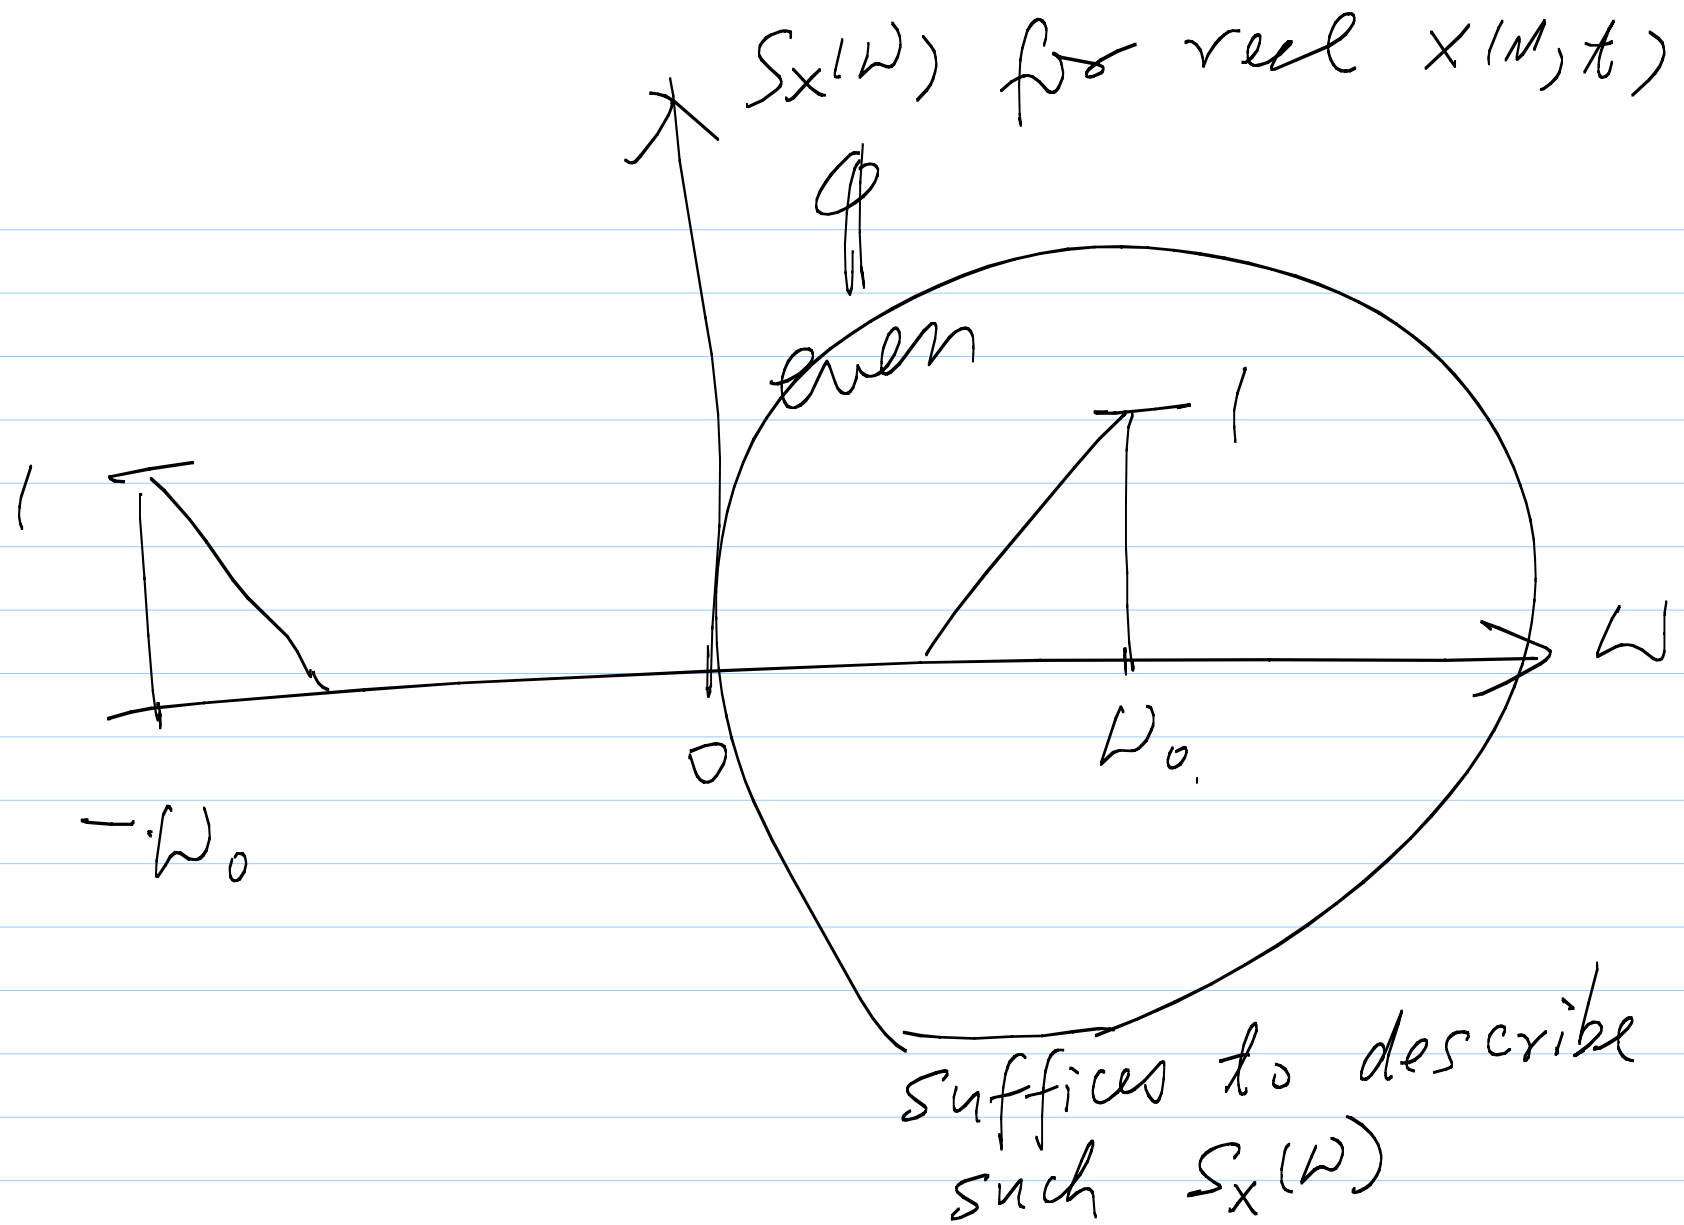 Sx(ω) for real x(μ,t)
even
1
1
ω
0
ω₀
-ω₀
suffices to describe
such Sx(ω)